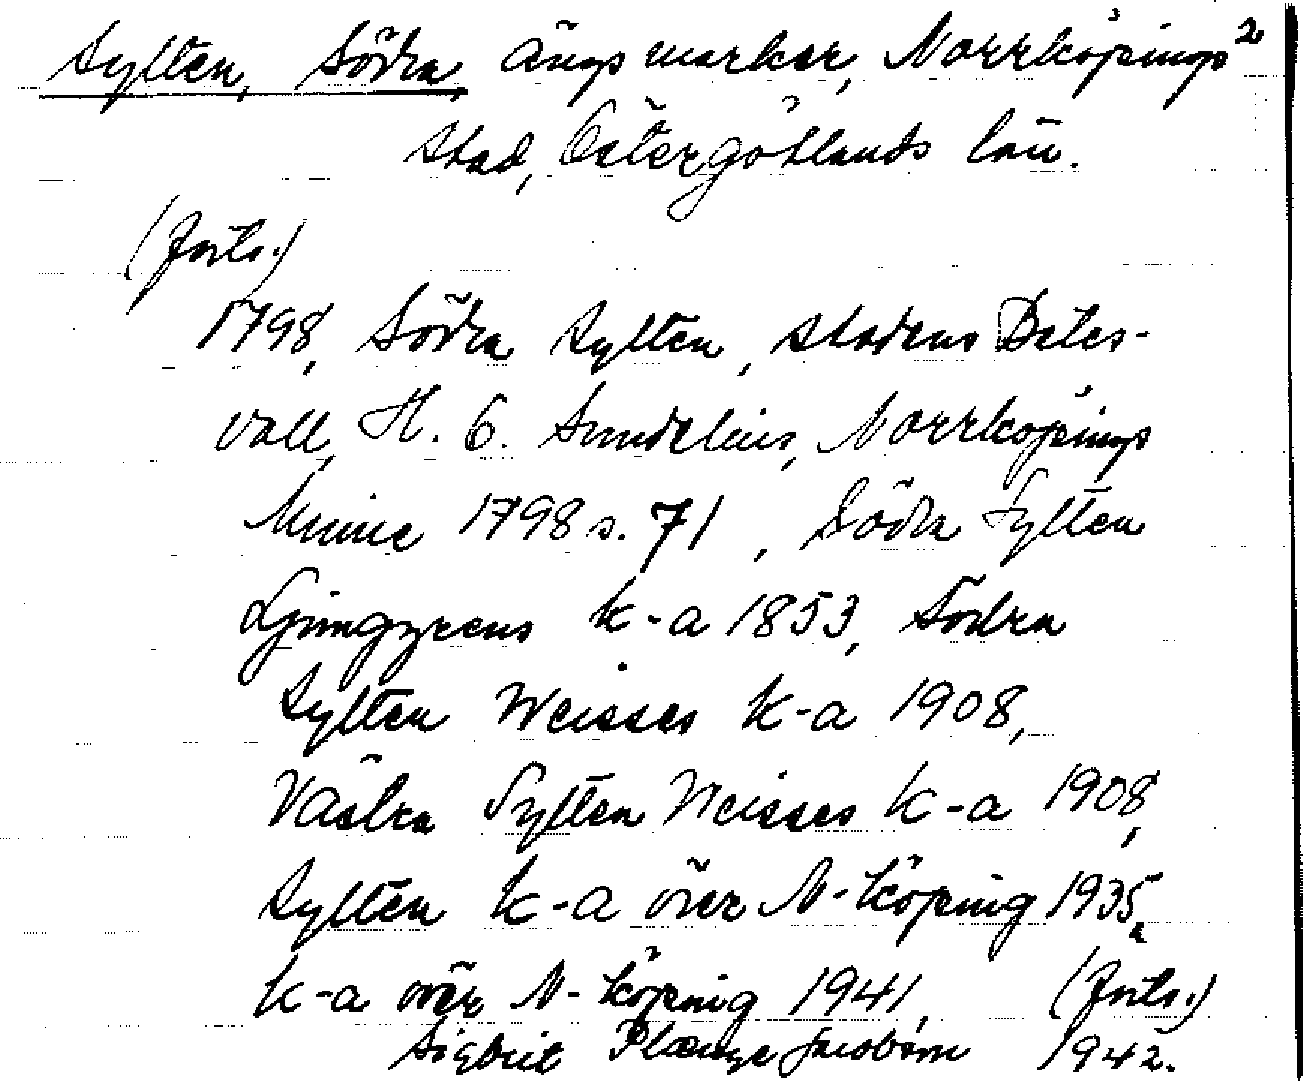 Sylten, Södra, ängsmarker, Norrköpings 2
stad, Östergötlands län.
(forts.)
1798, Södra Sylten, stadens Betes-
vall, H. G. Sundelius, Norrköpings
Minne 1798 s. 71, Södra Sylten
Ljunggrens k-a 1853, Södra
Sylten Weisses k-a 1908,
Västra Sylten Weisses k-a 1908,
Sylten k-a över N-köping 1935,
k-a över N-köping 1941, (forts.)
Sigbrit Plænge Jacobson 1942.